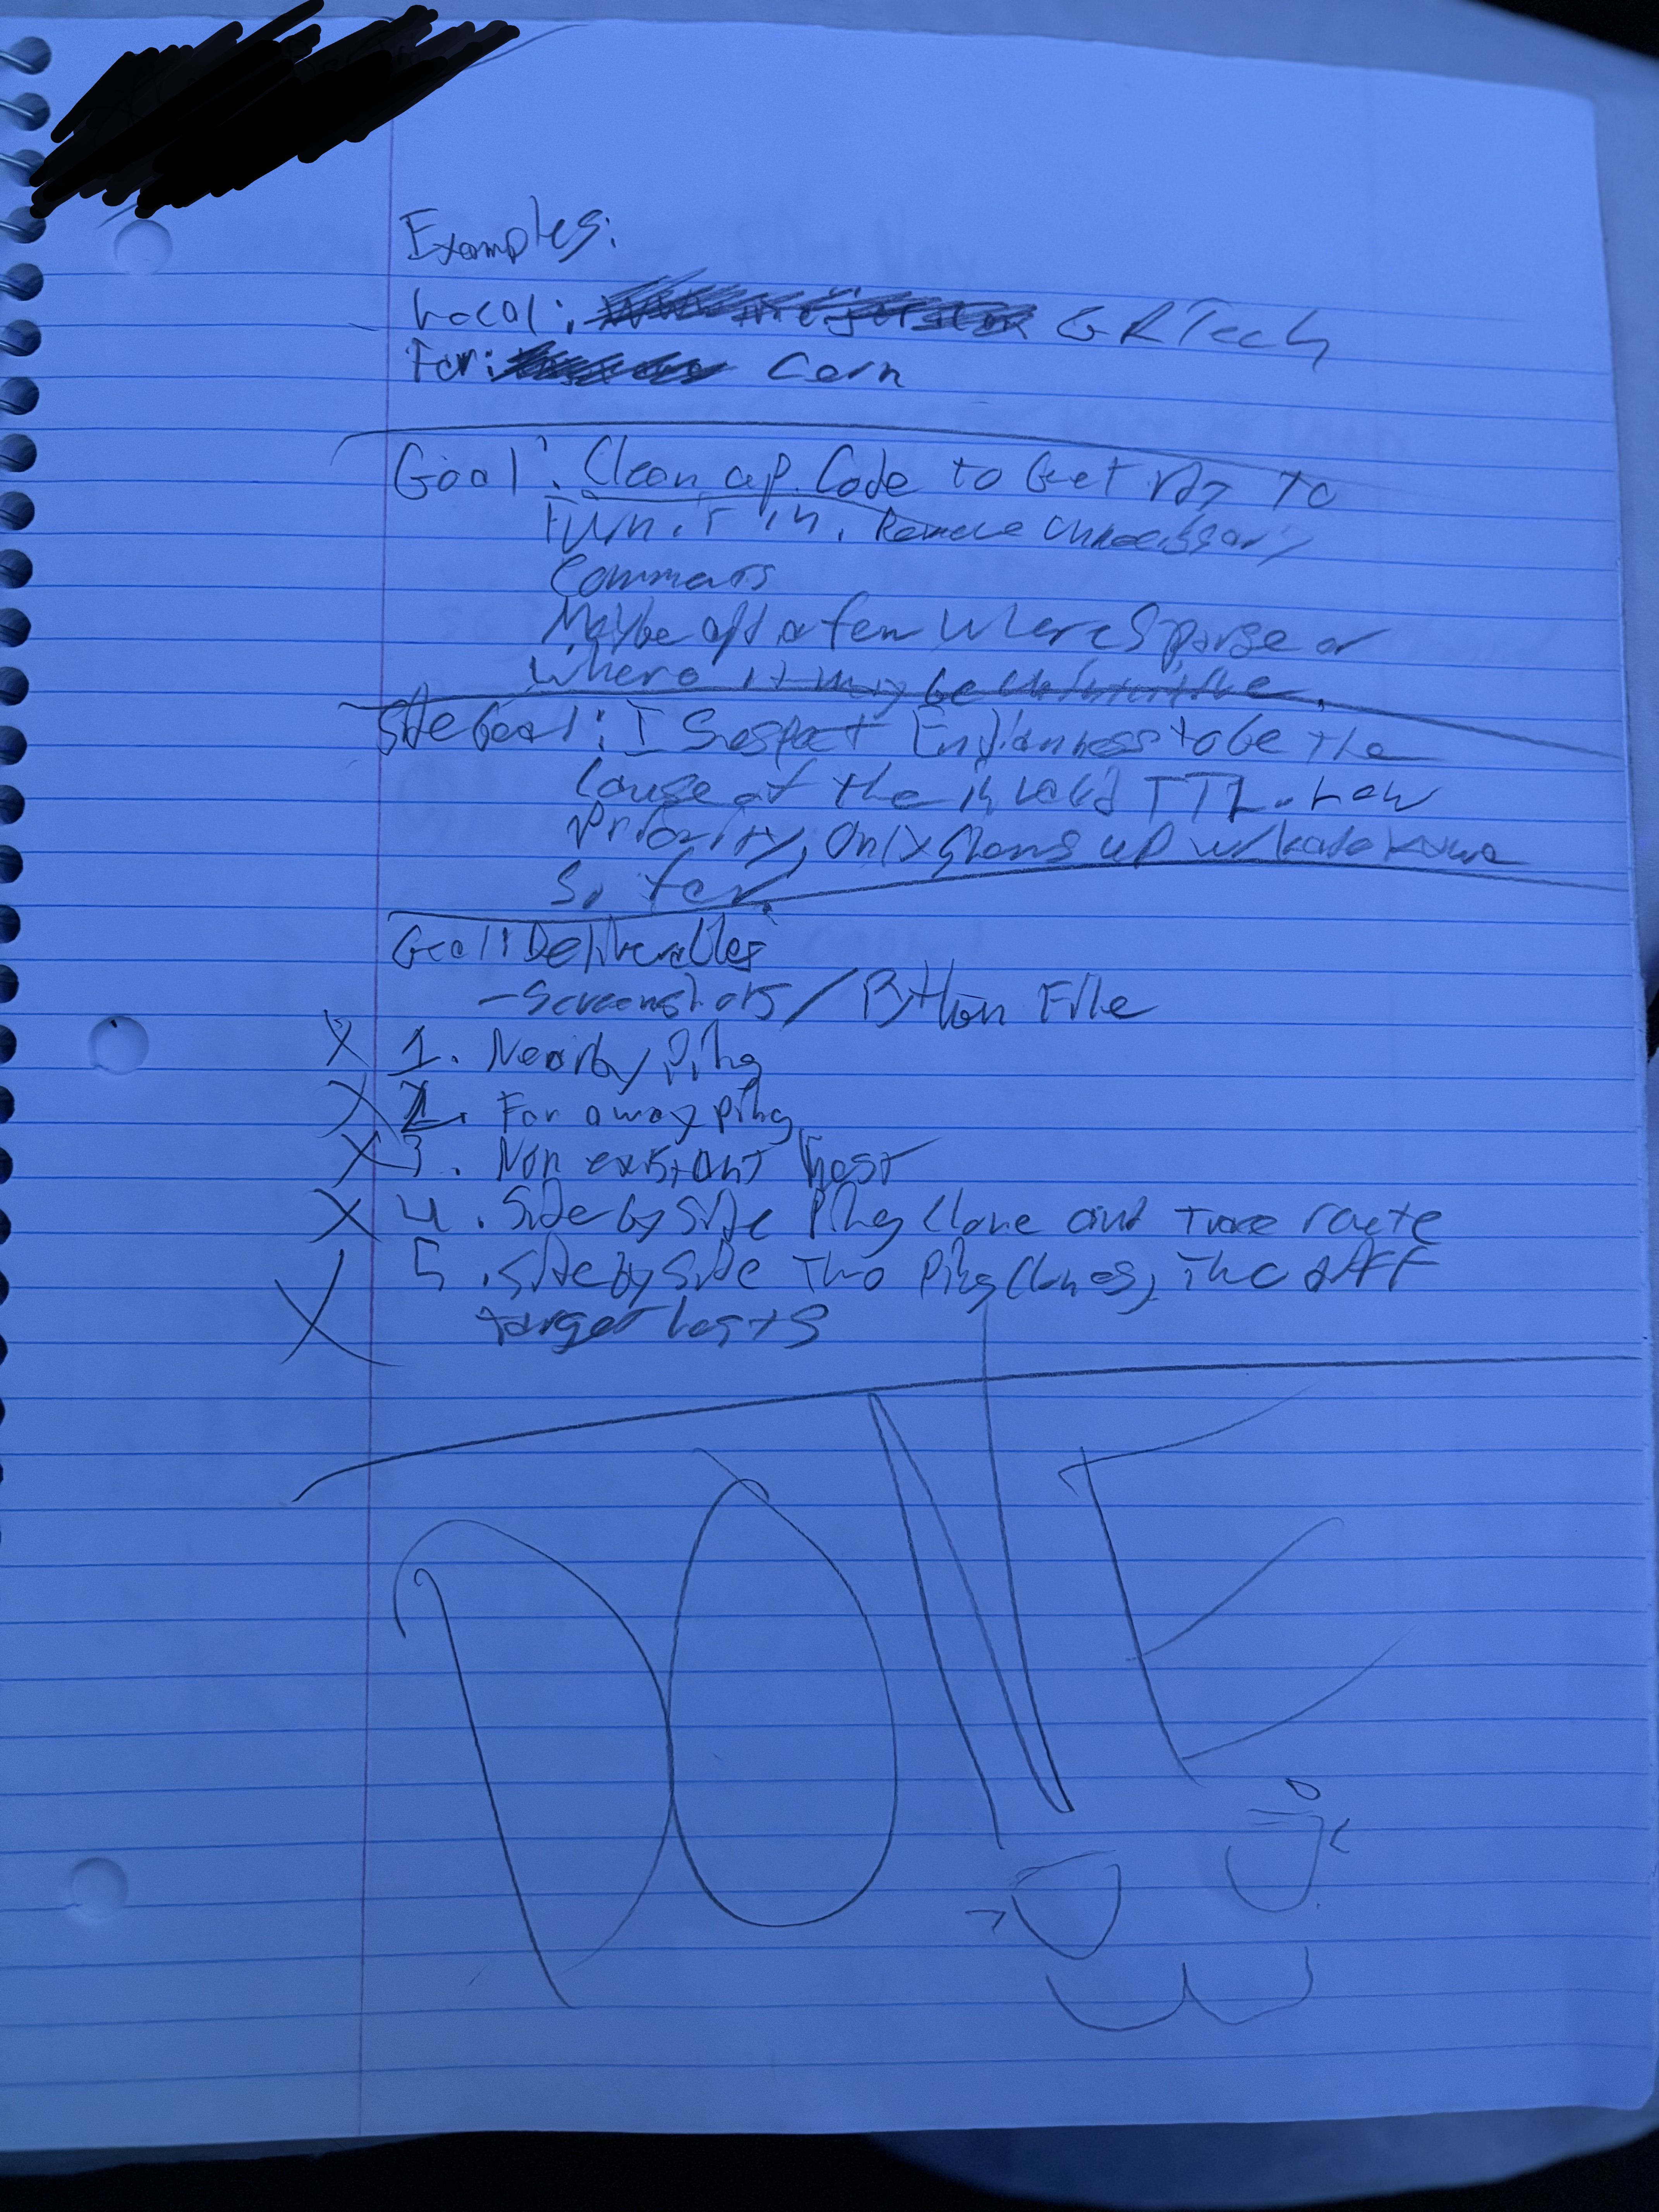 Examples:
Local: GRTech
Far: Cern
Goal: Clean up Code to Get rdy To
Turn it in. Remove unnecissary
Comments
Maybe add a few where sparse or
where it may be unintuitive.
Side Goal: I Suspect Endianness to be the
Cause of the invalid TTL. Low
Priority, Only shows up w/
So far.
Goal: Deliverables
- Screenshots / Python File
X 1. Nearby Ping
X 2. Far away ping
X 3. Non existant host
X 4. Side by side Ping Clone and Trace route
X 5. Side by Side Two Ping Clones, Two diff
target hosts
DONE